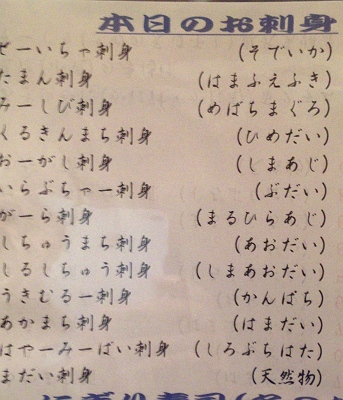 本日のお刺身
せーいちゃ刺身 (そでいか)
たまん刺身 (はまふえふき)
みーしび刺身 (めばちまぐろ)
くるきんまち刺身 (ひめだい)
おーがし刺身 (しまあじ)
いらぶちゃー刺身 (ぶだい)
がーら刺身 (まるひらあじ)
しちゅうまち刺身 (あおだい)
しるしちゅう刺身 (しまあおだい)
うきむるー刺身 (かんぱち)
あかまち刺身 (はまだい)
はやーみーばい刺身 (しろぶちはた)
まだい刺身 (天然物)